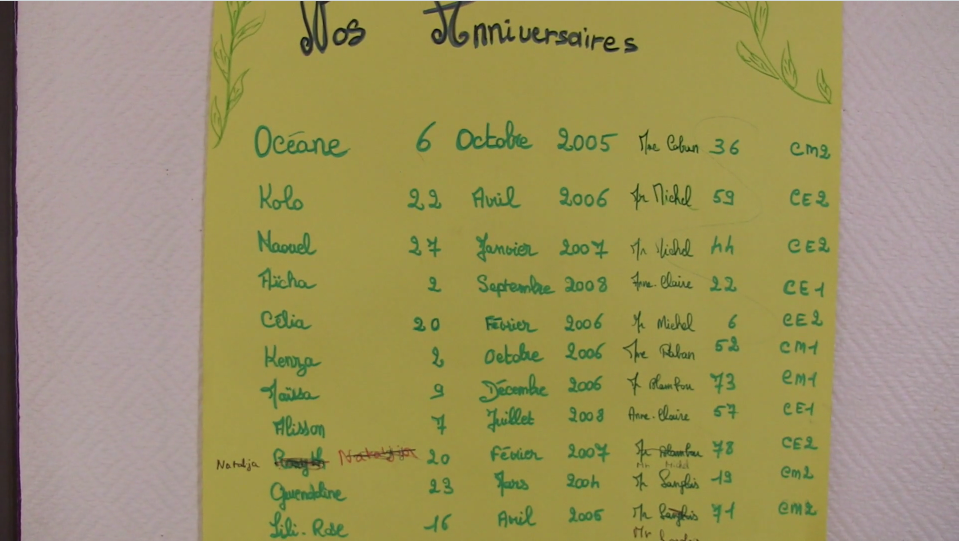 Nos Anniversaires
Océane 6 Octobre 2005 Mme 36 CM2
Kolo 22 Avril 2006 Mr Michel 59 CE2
Naouel 27 Janvier 2007 Mr Michel 44 CE2
Aïcha 2 Septembre 2008 Anne-Claire 22 CE1
Célia 20 Février 2006 Mr Michel 6 CE2
Kenza 2 Octobre 2006 Mme 52 CM1
Naïssa 9 Décembre 2006 73 CM1
Alisson 7 Juillet 2008 Anne-Claire 57 CE1
Natalja 20 Février 2007 Mr 78 CE2
Mr Michel
Gwendoline 23 Mars 2004 Mr Sanglis 19 CM2
Lili-Rose 16 Avril 2005 Mr 71 CM2
Mr